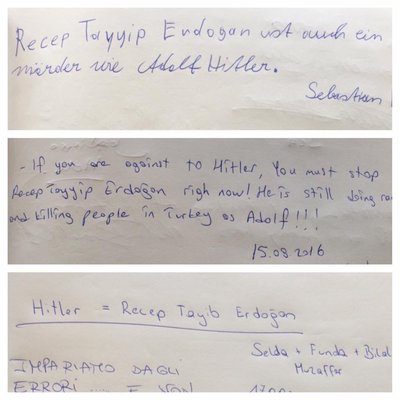 Recep Tayyip Erdogan ist auch ein
mörder wie Adolf Hitler.
Sebastian
- If you are against to Hitler, You must stop
Recep Tayyip Erdoğan righ now! He is still doing
and killing people in Turkey as Adolf!!!
15.08.2016
Hitler = Recep Tayib Erdoğan
Selda + Funda + Bilal
Muzaffar
IMPARIAMO DAGLI
ERRORI..... E NON